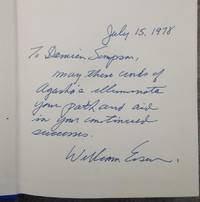 July 15, 1978
To Damien Simpson,
may these words of
Agasha's illuminate
your path and aid
in your continued
successes.
William Eisen.